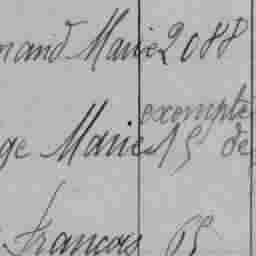 mand Marie 2088
exempté
ge Marie 15 de
François 65